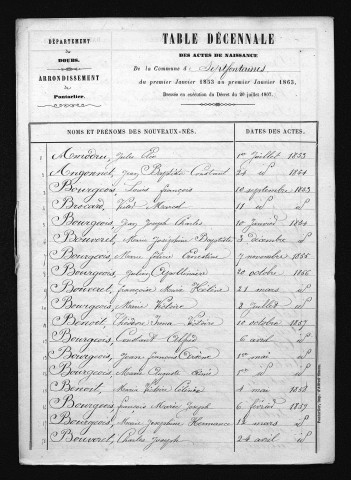 DÉPARTEMENT
du
DOUBS.
ARRONDISSEMENT
de
Pontarlier.
TABLE DÉCENNALE
DES ACTES DE NAISSANCE
De la Commune d
du premier Janvier 1853 au premier Janvier 1863,
Dressée en exécution du Décret du 20 juillet 1807.
NOMS ET PRÉNOMS DES NOUVEAUX-NÉS. DATES DES ACTES.
Jules 1er Juillet 1853
Jean Baptiste Constant 24 id
Bourgeois Louis françois 10 septembre 1853
Brocard Vital Marcel 11 id id
Bourgeois Jean Joseph Charles 10 Janvier
Bouveret Marie Joséphine Baptiste 3 décembre id
Bourgeois Marie Ernestine 7 novembre
Bourgeois Julien Apollinaire 20 octobre
Bouveret françoise Marie 21 mars id
Bourgeois Marie Victoire 3 Juillet id
Benoit Théodore Victoire 10 octobre 1857
Bourgeois Constant Alfred 6 avril id
Bourgeois Jean François 1er mai id
Bourgeois Marie 1er id id
Benoit Marie Victoire 4 mai 1858
Bourgeois françois Marie Joseph 6 février 1859
Bourgeois Marie Joséphine Hermance 14 mars id
Bouveret Charles Joseph 24 avril id